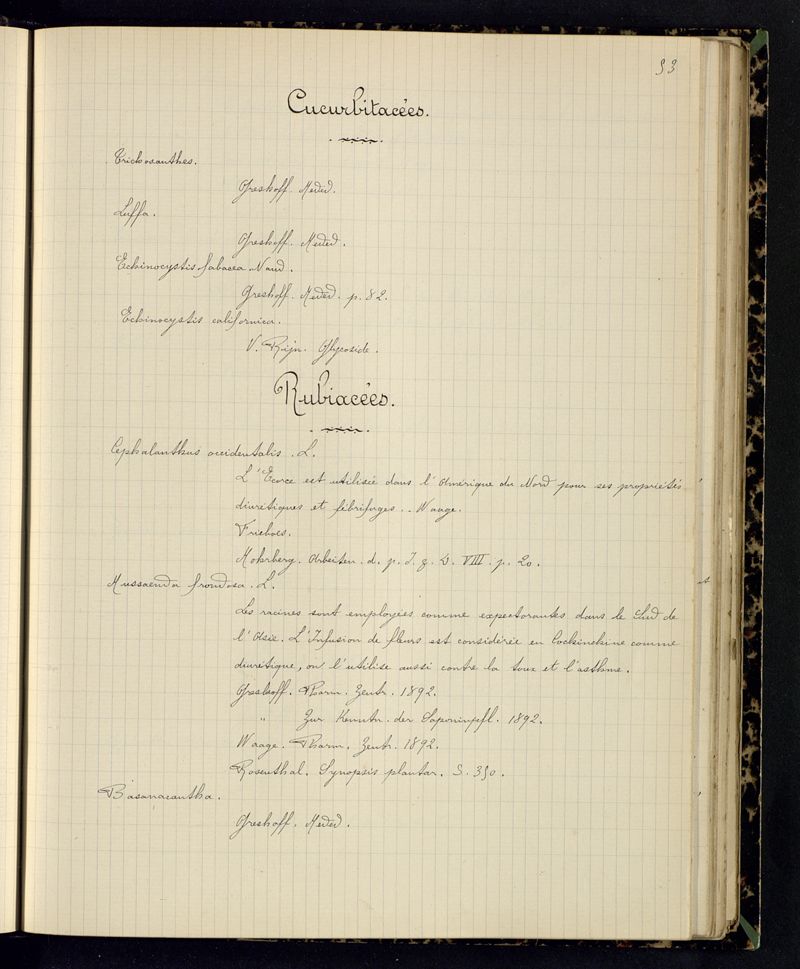 53
Cucurbitacées.
Trichosanthes.
Greshoff. Meded.
Luffa.
Greshoff. Meded.
Echinocystis fabacea. Naud.
Greshoff. Meded. p. 82.
Echinocystis californica.
V. Rijn. Glycoside.
Rubiacées.
Cephalanthus occidentalis. L.
L'Ecorce est utilisée dans l'Amérique du Nord pour ses propriétés
diurétiques et fébrifuges.. Waage.
Frieboes.
Mohrberg. Arbeiten. d. p. I. z. D. VIII. p. 20.
Mussaenda frondosa. L.
Les racines sont employées comme expectorantes dans le Sud de
l'Asie. L'Infusion de fleurs est considérée en Cochinchine comme
diurétique, on l'utilise aussi contre la toux et l'asthme.
Greshoff. Pharm. Zentr. 1892.
" Zur Kenntn. der Saponinpfl. 1892.
Waage. Pharm. Zentr. 1892.
Rosenthal. Synopsis plantar. S. 350.
Basanacantha.
Greshoff. Meded.